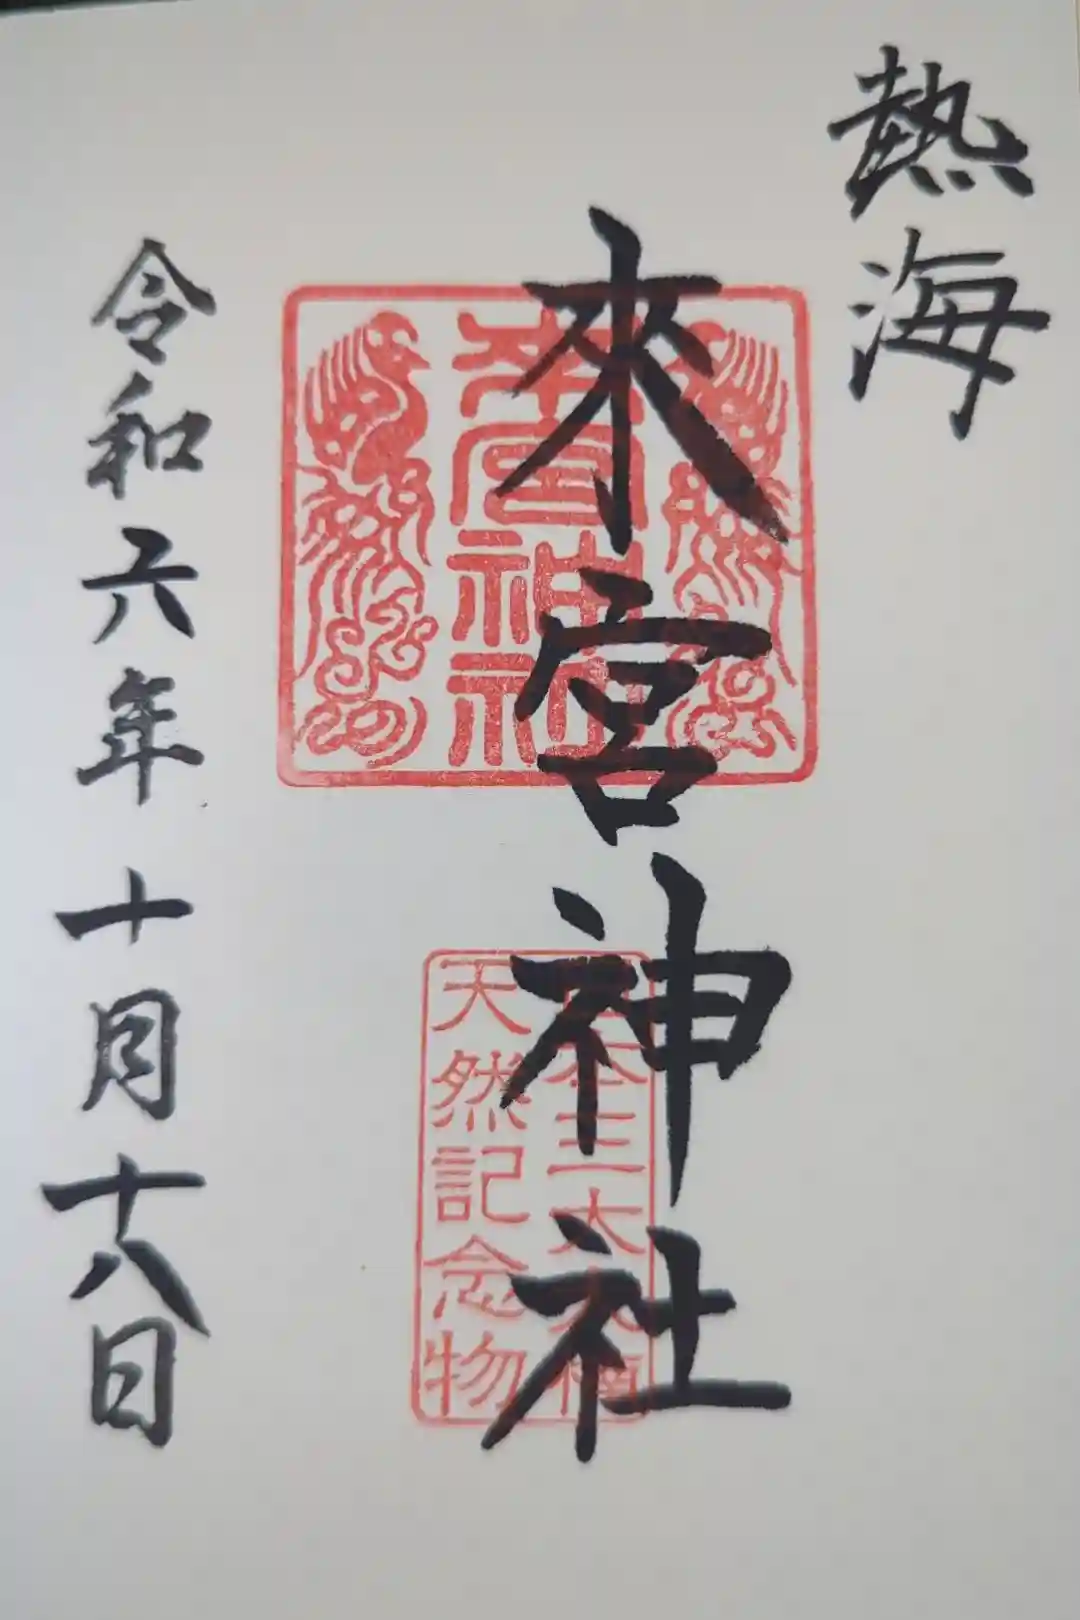 熱海
來宮神社
來宮神社
日本三大大楠
天然記念物
令和六年十月十八日